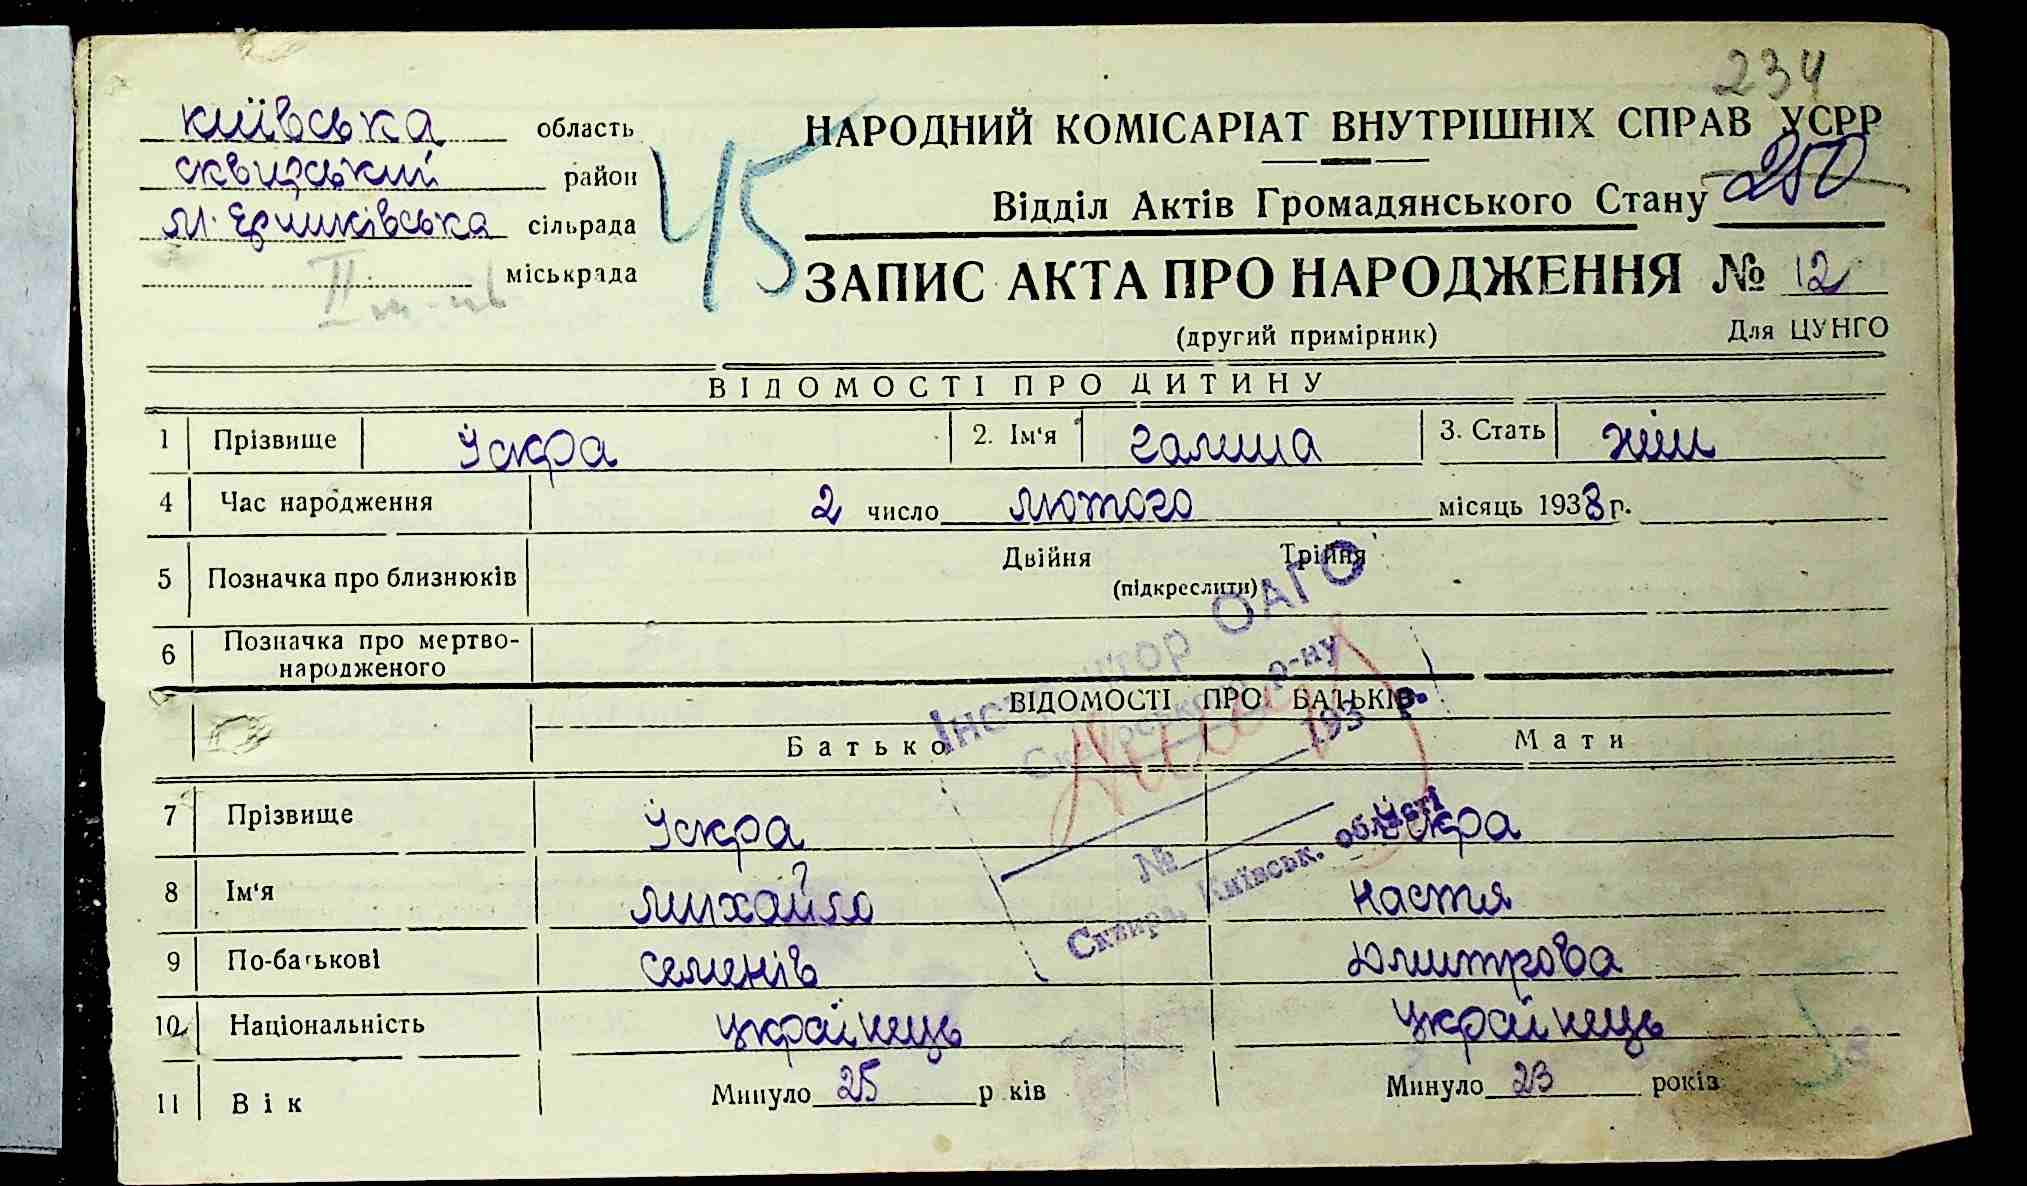 234
київська область
сквирський район
м. Єрчиківська сільрада
міськрада
45
НАРОДНИЙ КОМІСАРІАТ ВНУТРІШНІХ СПРАВ УСРР
Відділ Актів Громадянського Стану 250
ЗАПИС АКТА ПРО НАРОДЖЕННЯ № 12
(другий примірник) Для ЦУНГО
ВІДОМОСТІ ПРО ДИТИНУ
1 Прізвище Іскра 2. Ім'я галина 3. Стать жін
4 Час народження 2 число лютого місяць 1938 р.
5 Позначка про близнюків Двійня Трійня
(підкреслити)
6 Позначка про мертво-
народженого
Інструктор ОАГО
Сквирського р-ну
193 р.
№
Сквира, Київськ. області
ВІДОМОСТІ ПРО БАТЬКІВ
Батько Мати
7 Прізвище Іскра Іскра
8 Ім'я михайло настя
9 По-батькові семенів Дмитрова
10 Національність українець українець
11 Вік Минуло 25 р ків Минуло 23 років